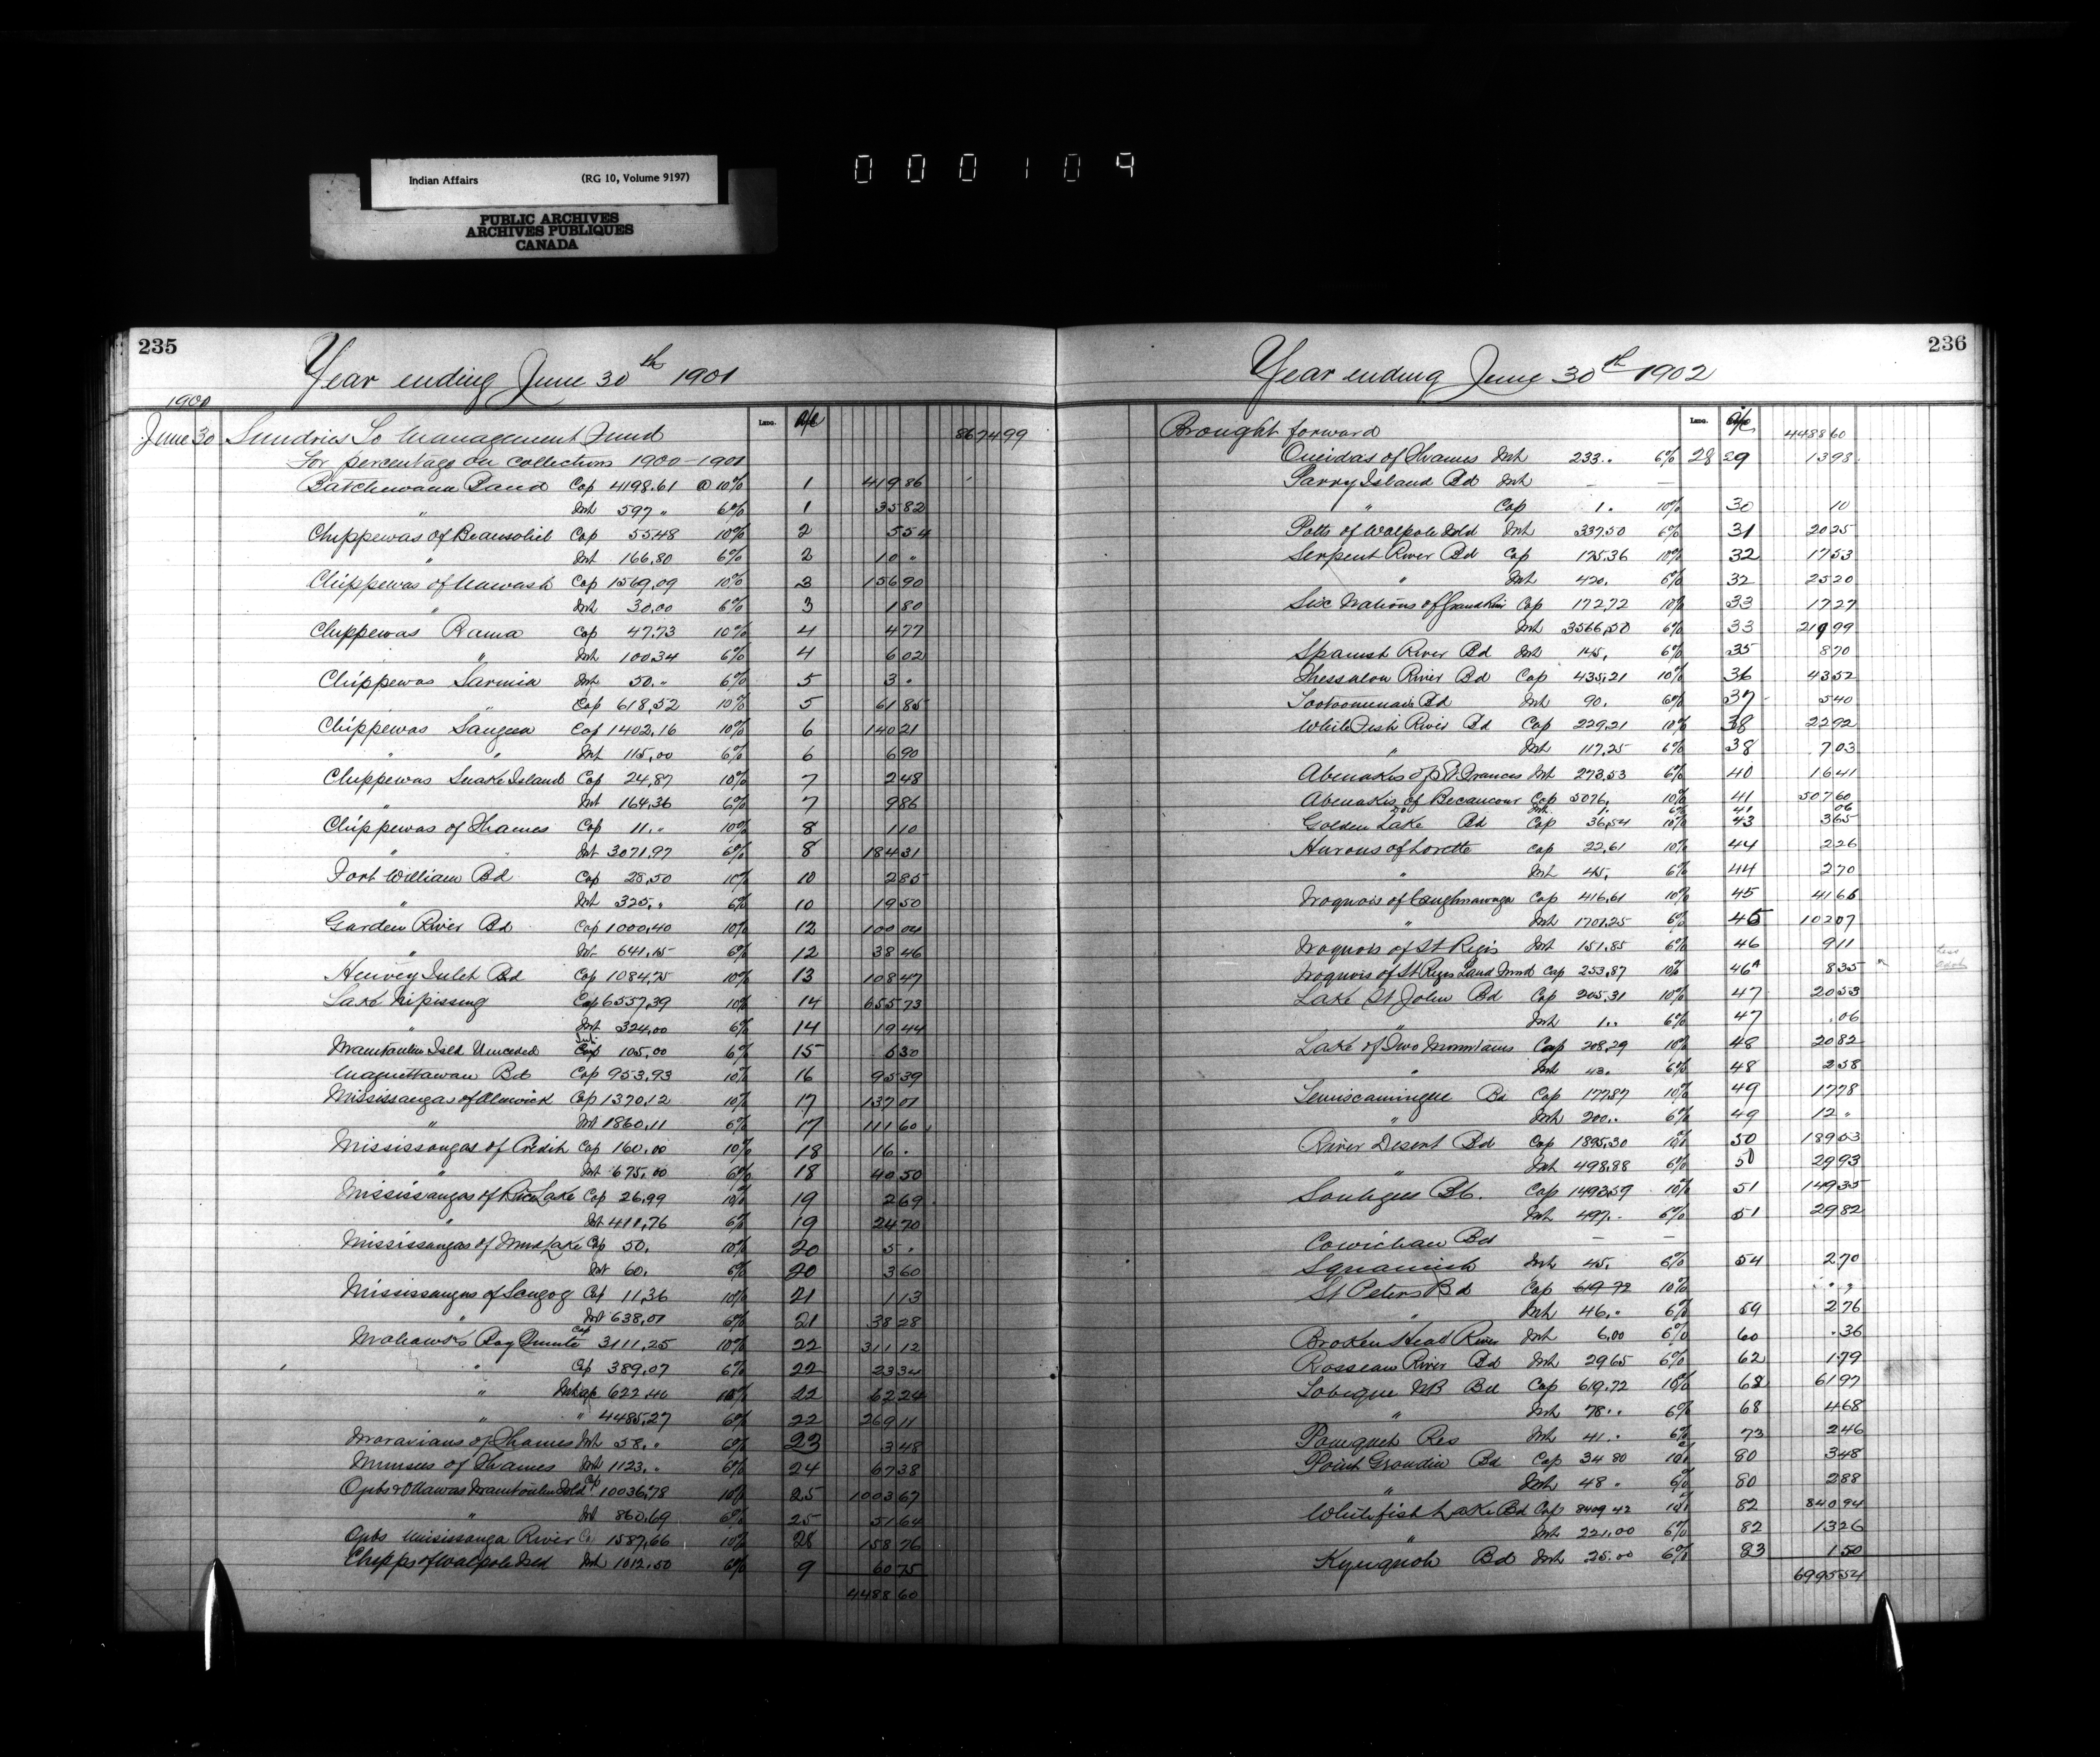 Indian Affairs (RG 10, Volume 9197)
PUBLIC ARCHIVES
ARCHIVES PUBLIQUES
CANADA
000109
235
Year ending June 30th 1901
1900
Lino. a/c
June 30 Sundries To Management Fund 8674 99
For percentage on collections 1900-1901
Batchewana Band Cap 4198.61 @ 10% 1 419 86
" Int 597 " 6% 1 35 82
Chippewas of Beausoliel Cap 55.48 10% 2 5 54
" Int 166.80 6% 2 10 "
Chippewas of Nawash Cap 1569.09 10% 3 156 90
" Int 30.00 6% 3 1 80
Chippewas Rama Cap 47.73 10% 4 4 77
" Int 100.34 6% 4 6 02
Chippewas Sarnia Int 50. " 6% 5 3 "
" Cap 618.52 10% 5 61 85
Chippewas Saugeen Cap 1402.16 10% 6 140 21
" " Int 115.00 6% 6 6 90
Chippewas Snake Island Cap 24.87 10% 7 2 48
" Int 164.36 6% 7 9 86
Chippewas of Thames Cap 11. " 10% 8 1 10
" Int 3071.97 6% 8 184 31
Fort William Bd Cap 28.50 10% 10 2 85
" Int 325. " 6% 10 19 50
Garden River Bd Cap 1000.40 10% 12 100 04
" Int 641.15 6% 12 38 46
Henvey Inlet Bd Cap 1084.75 10% 13 108 47
Lake Nipissing Cap 6557.39 10% 14 655 73
" Int 324.00 6% 14 19 44
Manitoulin Isld Unceded Int Cap 105.00 6% 15 6 30
Maganettawan Bd Cap 953.93 10% 16 95 39
Mississaugas of Alnwick Cap 1370.12 10% 17 137 01
" Int 1860.11 6% 17 111 60
Mississaugas of Credit Cap 160.00 10% 18 16 "
" Int 675.00 6% 18 40 50
Mississaugas of Rice Lake Cap 26.99 10% 19 2 69
" Int 411.76 6% 19 24 70
Mississaugas of Mud Lake Cap 50. 10% 20 5 "
Int 60. 6% 20 3 60
Mississaugas of Scugog Cap 11.36 10% 21 1 13
" Int 638.01 6% 21 38 28
Mohawks Bay Quinte Cap 3111.25 10% 22 311 12
" Cap 389.07 6% 22 23 34
" 622.40 10% 22 62 24
" " 4485.27 6% 22 269 11
Moravians of Thames Int 58. " 6% 23 3 48
Munsees of Thames Int 1123. " 6% 24 67 38
Ojibs & Ottawas Manitoulin Isld Cap 10036.78 10% 25 1003 67
" Int 860.69 6% 25 51 64
Ojibs Mississauga River Ca 1587.66 10% 28 158 76
Chipps of Walpole Isld Int 1012.50 6% 9 60 75
4488 60
236
Year ending June 30th 1902
Lino. a/c
Brought forward 4488 60
Oneidas of Thames Int 233. " 6% 28 29 13 98
Parry Island Bd Int — —
" Cap 1. 10% 30 10
Potts of Walpole Isld Int 337.50 6% 31 20 25
Serpent River Bd Cap 175.36 10% 32 17 53
" Int 420. 6% 32 25 20
Six Nations of Grand River Cap 172.72 10% 33 17 27
Int 3566.50 6% 33 219 99
Spanish River Bd Int 145. 6% 35 8 70
Thessalon River Bd Cap 435.21 10% 36 43 52
Tootoomenais Bd Int 90. 6% 37 5 40
White Fish River Bd Cap 229.21 10% 38 22 92
" Int 117.25 6% 38 7 03
Abenakis of St Francis Int 273.53 6% 40 16 41
Abenakis of Becancour Cap 5076. 10% 41 507 60
Int 1. 6% 41 06
Golden Lake Bd Cap 36.54 10% 43 3 65
Hurons of Lorette Cap 22.61 10% 44 2 26
" Int 45. 6% 44 2 70
Iroquois of Caughnawaga Cap 416.61 10% 45 41 66
" Int 1701.25 6% 45 102 07
Iroquois of St Regis Int 151.85 6% 46 9 11
Iroquois of St Regis Land Fund Cap 253.87 10% 46A 8 35
Lake St John Bd Cap 205.31 10% 47 20 53
" Int 1. " 6% 47 .06
Lake of Two Mountains Cap 208.29 10% 48 20 82
" Int 43. 6% 48 2 58
Temiscamingue Bd Cap 177.87 10% 49 17 78
" Int 200. " 6% 49 12 "
River Desert Bd Cap 1895.30 10% 50 189 53
" Int 498.88 6% 50 29 93
Songees Bd. Cap 1493.59 10% 51 149 35
Int 497. " 6% 51 29 82
Cowichan Bd — —
Squamish Int 45. 6% 54 2 70
St Peters Bd Cap 619.72 10%
" Int 46. " 6% 59 2 76
Broken Head River Int 6.00 6% 60 .36
Rosseau River Bd Int 29.65 6% 62 1.79
Tobique NB Bd Cap 619.72 10% 68 61 97
" Int 78. " 6% 68 4 68
Pomquet Res Int 41. " 6% 73 2 46
Point Grondin Bd Cap 34 80 10% 80 3 48
" Int 48 " 6% 80 2 88
Whitefish Lake Bd Cap 8409 42 10% 82 840 94
" Int 221.00 6% 82 13 26
Kyuquot Bd Int 25.00 6% 83 1 50
6995 54